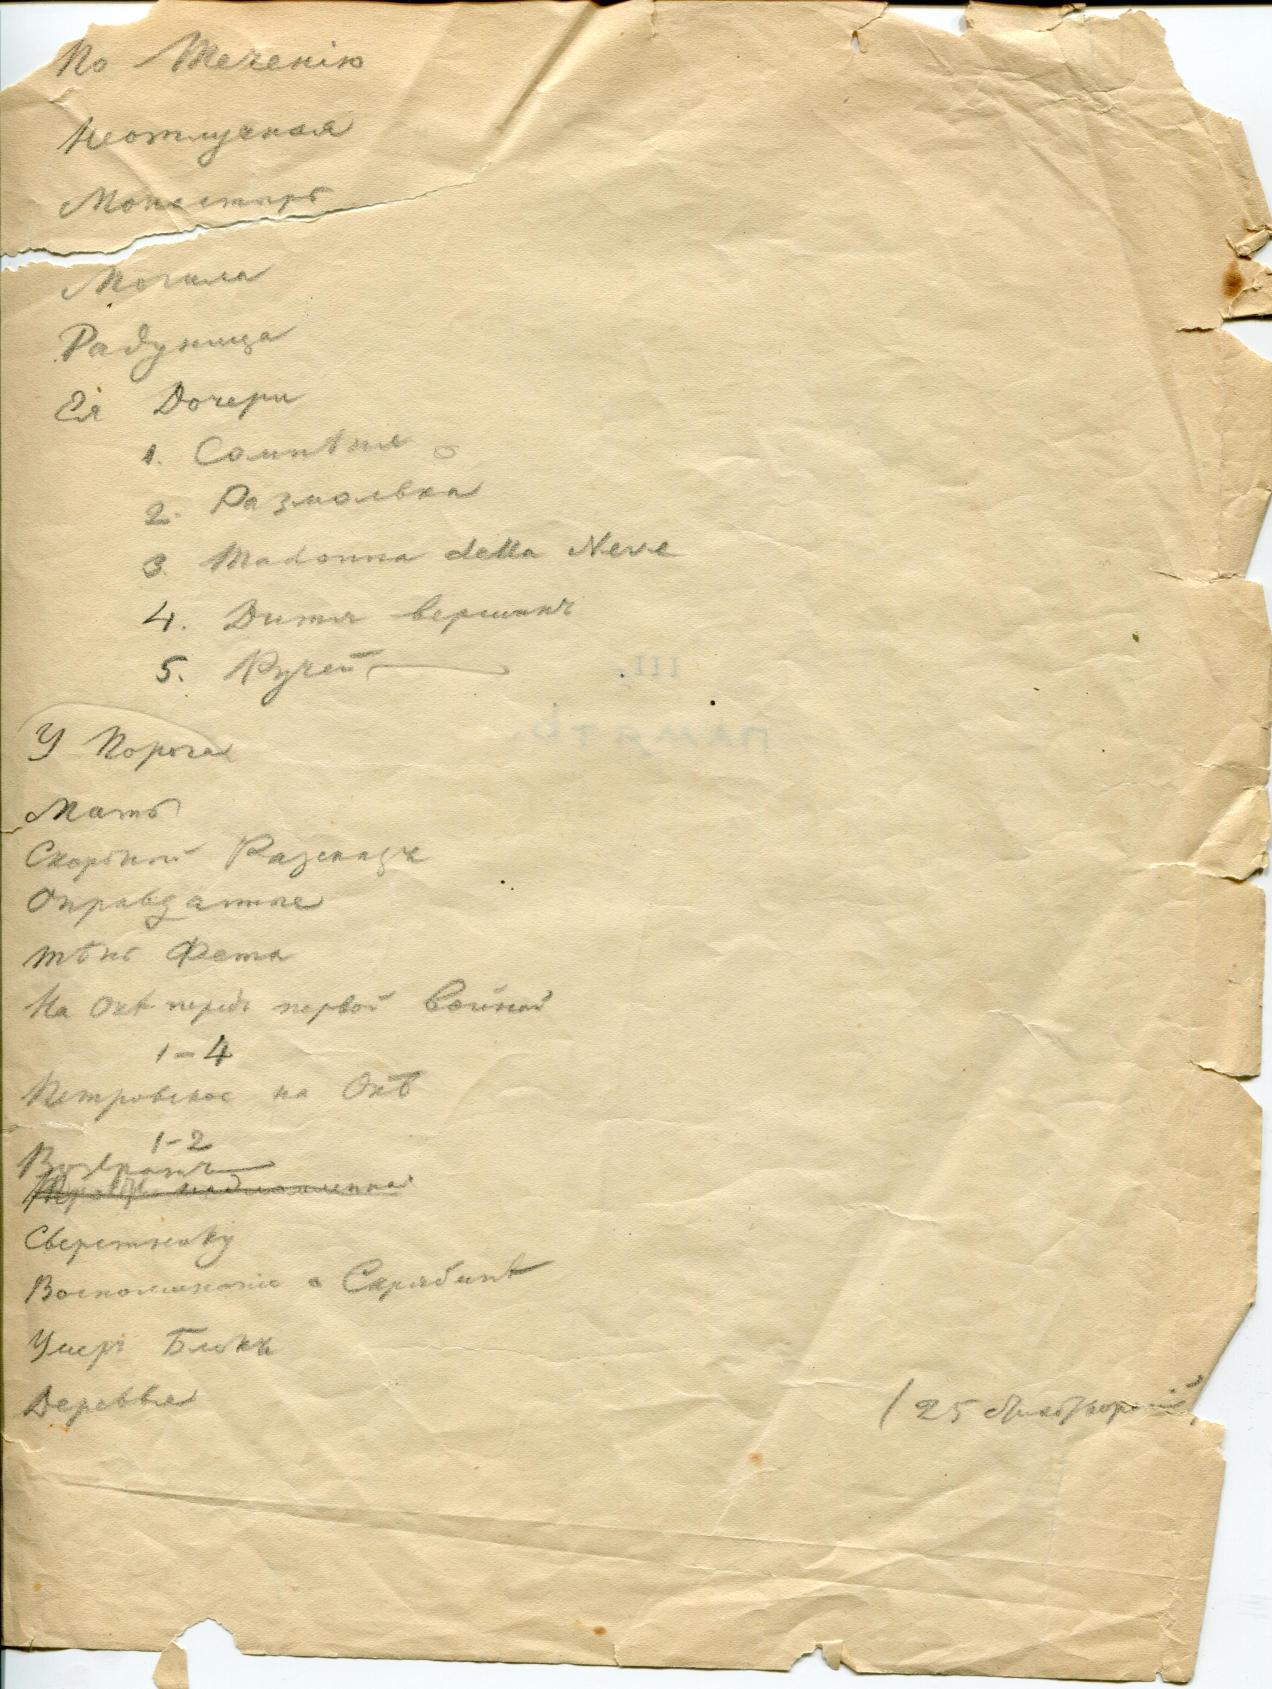 По Теченію
Неотлучная
Монастырь
Могила
Радуница
Ея Дочери
1. Сомнѣнія
2. Размолвка
3. Madonna della Neve
4. Дитя вершинъ
5. Ручей
III.
ПАМЯТЬ.
У Порога
Мать
Скорбный Разсказъ
Оправданные
Тѣнь Фета
На Окѣ передъ первой войной
1-4
Петровское на Окѣ
1-2
Возвратъ
надломленная
Сверстнику
Воспоминаніе о Скрябинѣ
Умеръ Блокъ
Деревья
/ 25 стихотвореній